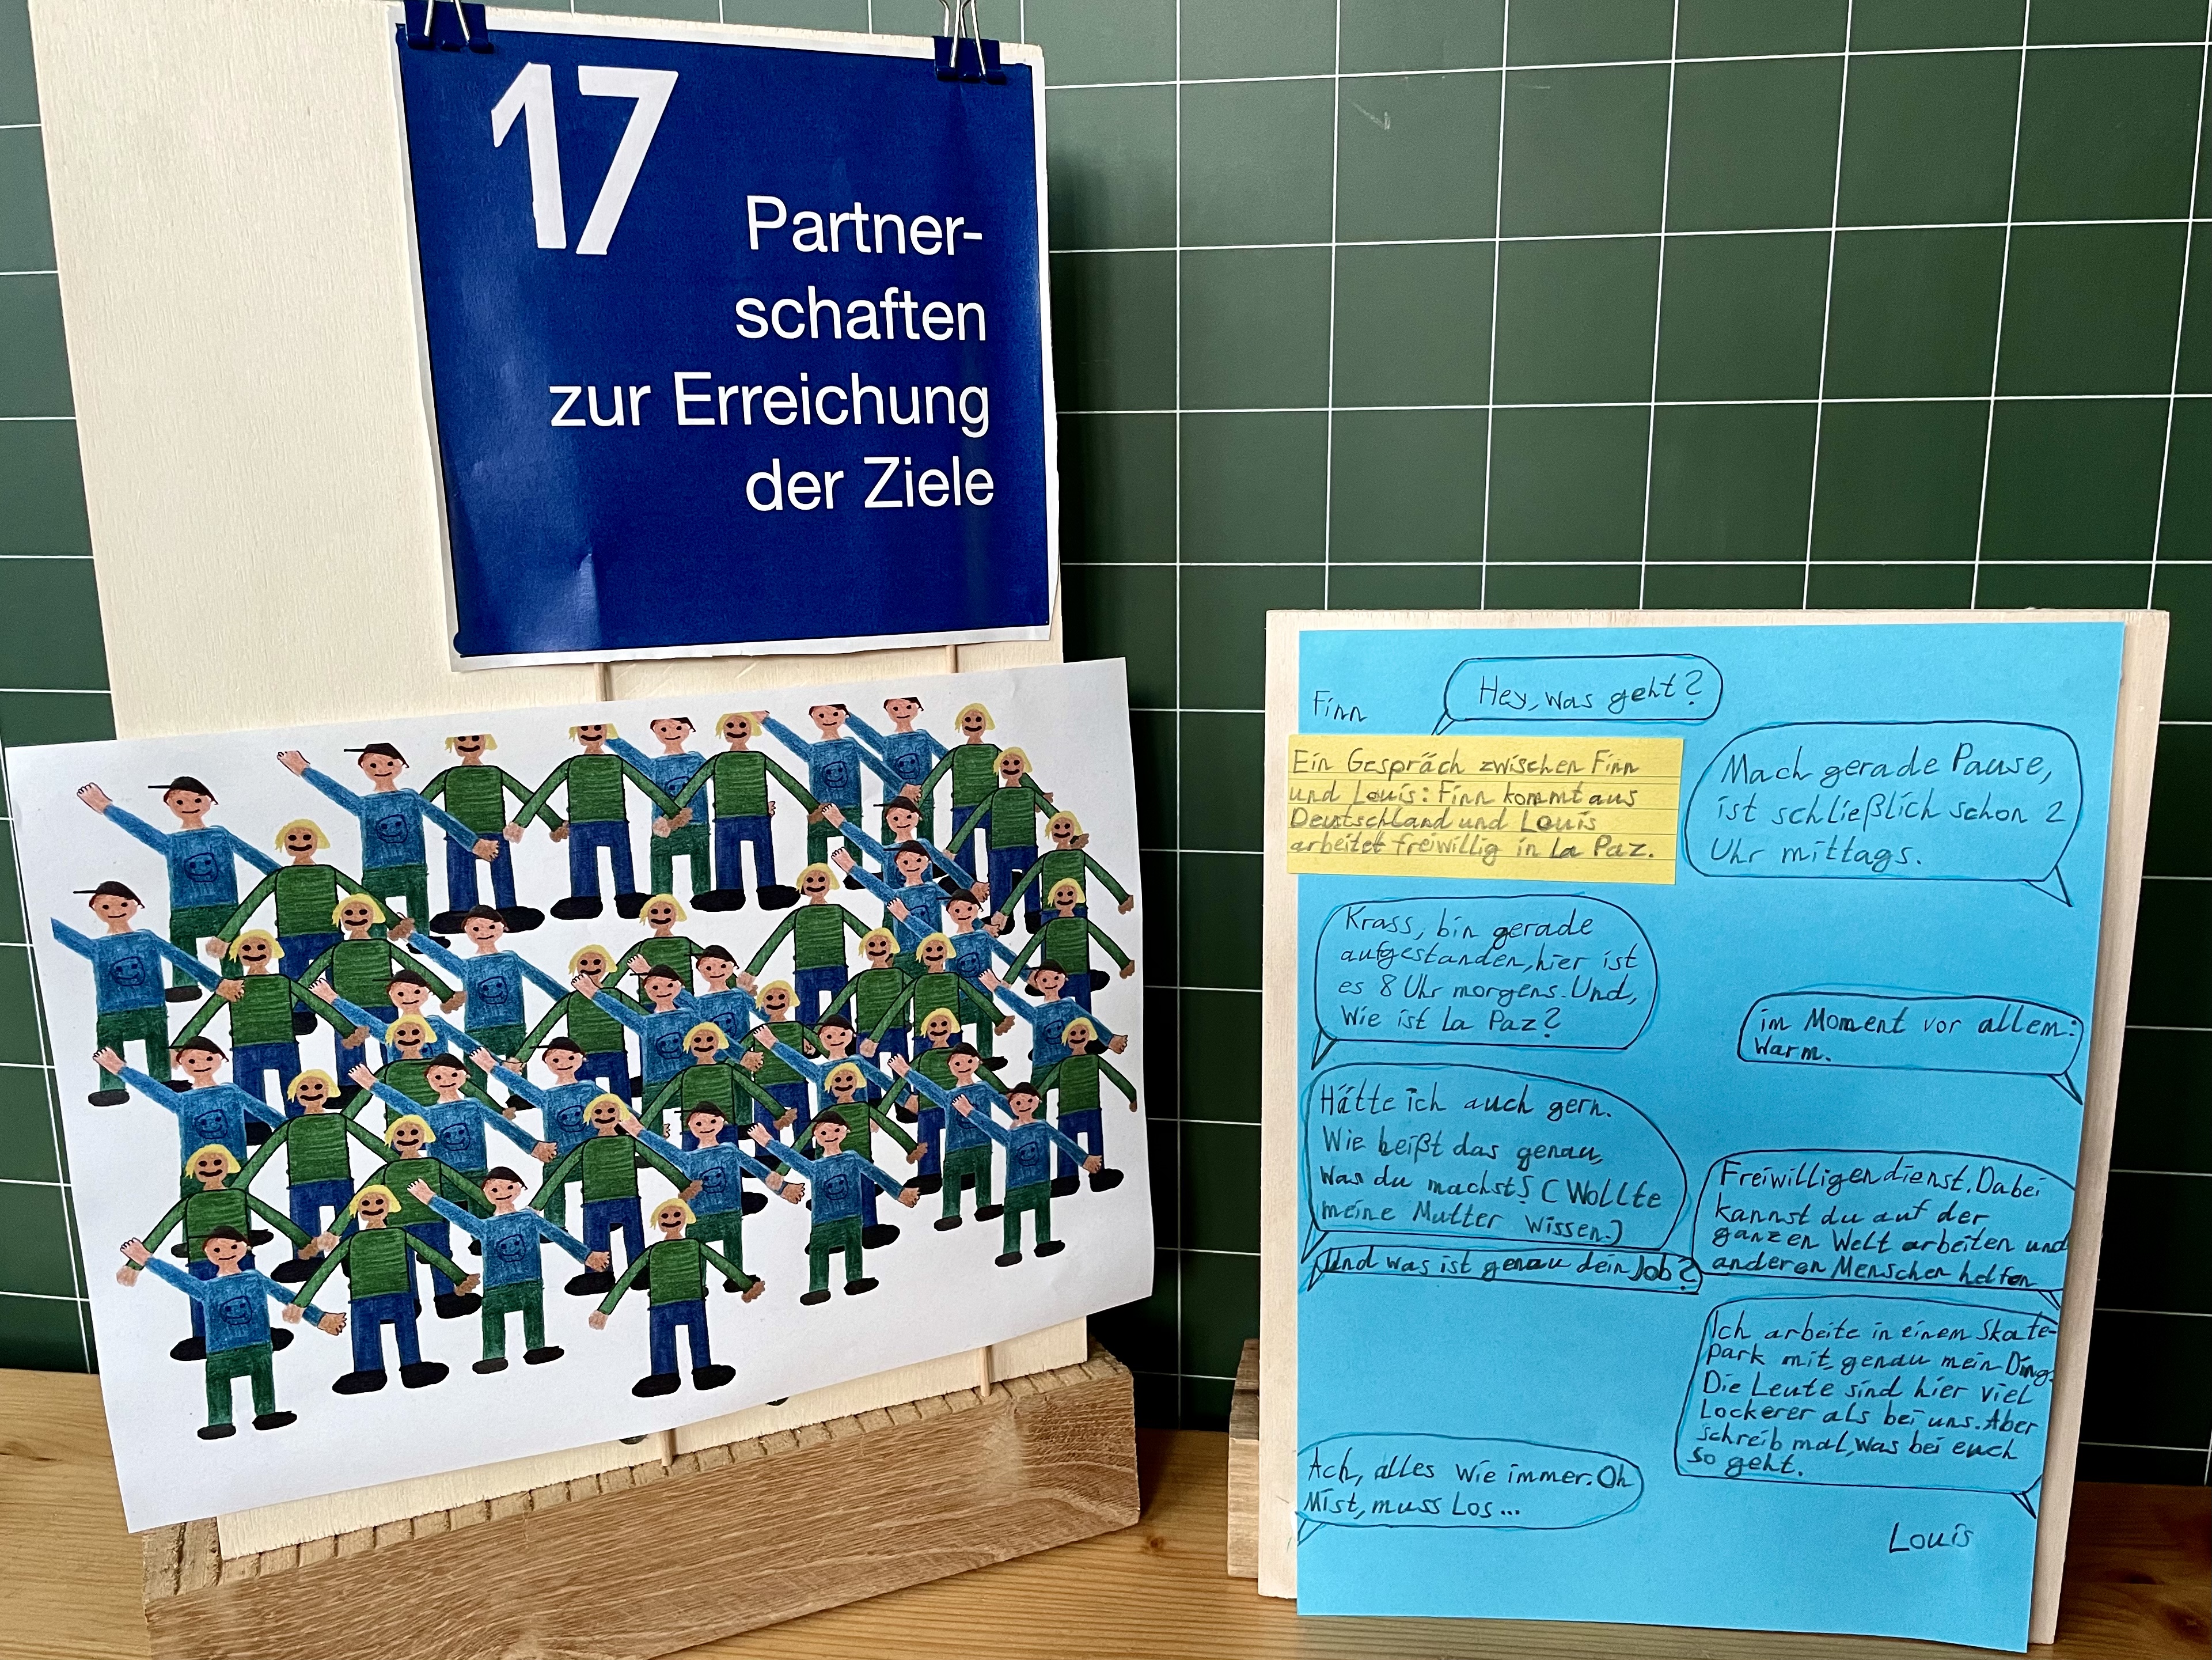 17
Partner-
schaften
zur Erreichung
der Ziele
Finn
Hey, was geht?
Ein Gespräch zwischen Finn
und Louis: Finn kommt aus
Deutschland und Louis
arbeitet freiwillig in La Paz.
Mach gerade Pause,
ist schließlich schon 2
Uhr mittags.
Krass, bin gerade
aufgestanden, hier ist
es 8 Uhr morgens. Und,
Wie ist La Paz?
im Moment vor allem:
Warm.
Hätte ich auch gern.
Wie heißt das genau,
Was du machst? (Wollte
meine Mutter wissen.)
Freiwilligendienst. Dabei
kannst du auf der
ganzen Welt arbeiten und
anderen Menschen helfen
Und was ist genau dein Job?
Ich arbeite in einem Skate-
Park mit, genau mein Ding.
Die Leute sind hier viel
Lockerer als bei uns. Aber
schreib mal, was bei euch
so geht.
Ach, alles wie immer. Oh
Mist, muss Los...
Louis